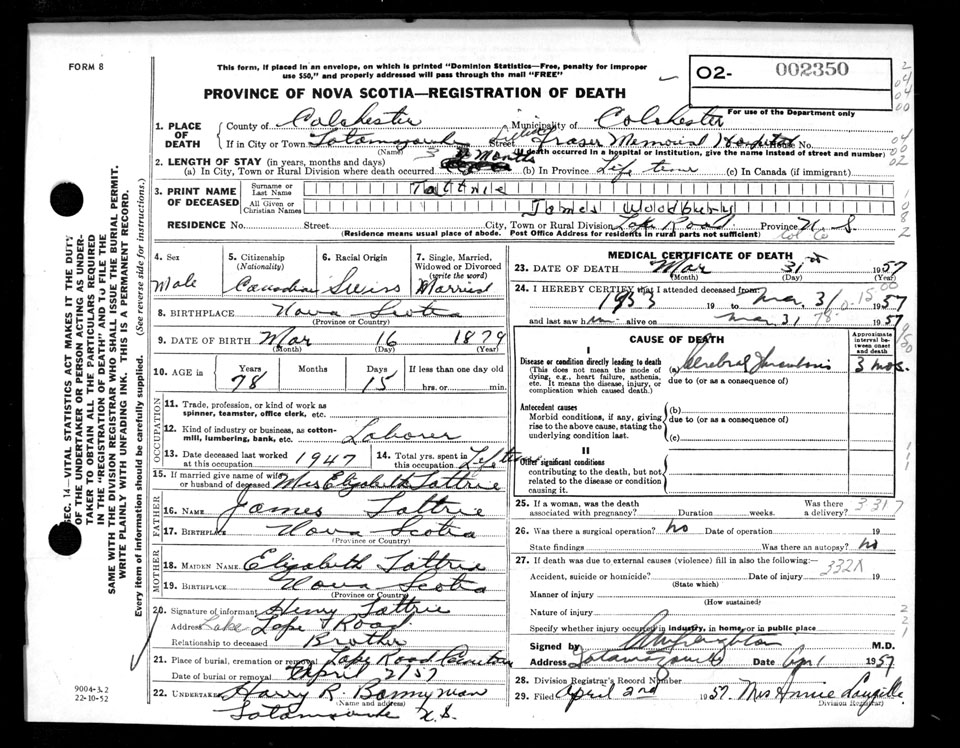 FORM 8
This form, if placed in an envelope, on which is printed "Dominion Statistics—Free, penalty for improper
use $50," and properly addressed will pass through the mail "FREE"
O2- 002350
PROVINCE OF NOVA SCOTIA—REGISTRATION OF DEATH
For use of the Department only
1. PLACE OF DEATH
County of Colchester Municipality of Colchester
If in City or Town Tatamagouche Street Lillian Fraser Memorial Hospital House No.
(Name) (If death occurred in a hospital or institution, give the name instead of street and number)
2. LENGTH OF STAY (in years, months and days)
(a) In City, Town or Rural Division where death occurred 3 Months (b) In Province Life time (c) In Canada (if immigrant)
3. PRINT NAME OF DECEASED
Surname or Last Name Tattrie
All Given or Christian Names James Woodbury
RESIDENCE No. Street City, Town or Rural Division Lake Road Province N.S.
(Residence means usual place of abode. Post Office Address for residents in rural parts not sufficient)
4. Sex Male
5. Citizenship (Nationality) Canadian
6. Racial Origin Swiss
7. Single, Married, Widowed or Divorced (write the word) Married
8. BIRTHPLACE Nova Scotia
(Province or Country)
9. DATE OF BIRTH Mar 16 1879
(Month) (Day) (Year)
10. AGE in Years 78 Months Days 15 If less than one day old hrs. or min.
OCCUPATION
11. Trade, profession, or kind of work as spinner, teamster, office clerk, etc.
12. Kind of industry or business, as cotton-mill, lumbering, bank, etc. Laborer
13. Date deceased last worked at this occupation 1947
14. Total yrs. spent in this occupation Life time
15. If married give name of wife or husband of deceased Mrs Elizabeth Tattrie
FATHER
16. NAME James Tattrie
17. BIRTHPLACE Nova Scotia
(Province or Country)
MOTHER
18. MAIDEN NAME Elizabeth Tattrie
19. BIRTHPLACE Nova Scotia
(Province or Country)
20. Signature of informant Henry Tattrie
Address Lake Road
Relationship to deceased Brother
21. Place of burial, cremation or removal Lake Road Cemetery
Date of burial or removal April 2/57
22. UNDERTAKER Harry R. Bonnyman
(Name and address)
Tatamagouche N.S.
MEDICAL CERTIFICATE OF DEATH
23. DATE OF DEATH Mar 31st 1957
(Month) (Day) (Year)
24. I HEREBY CERTIFY that I attended deceased from:
1953 19 to Mar 31 1957
and last saw him alive on Mar 31 1957
CAUSE OF DEATH
Approximate interval between onset and death
I
Disease or condition directly leading to death (a) Cerebral Thrombosis 3 mos.
(This does not mean the mode of dying, e.g., heart failure, asthenia, etc. It means the disease, injury, or complication which caused death.)
due to (or as a consequence of)
Antecedent causes
Morbid conditions, if any, giving rise to the above cause, stating the underlying condition last.
(b)
due to (or as a consequence of)
(c)
II
Other significant conditions
contributing to the death, but not related to the disease or condition causing it.
25. If a woman, was the death associated with pregnancy? Duration weeks. Was there a delivery? 3317
26. Was there a surgical operation? No Date of operation 19
State findings Was there an autopsy? No
27. If death was due to external causes (violence) fill in also the following:—
332X
Accident, suicide or homicide? Date of injury 19
(State which)
Manner of injury
(How sustained)
Nature of injury
Specify whether injury occurred in industry, in home, or in public place
Signed by M.D.
Address Tatamagouche Date Apr 1 1957
28. Division Registrar's Record Number
29. Filed April 2nd 1957. Mrs Annie Langille
Division Registrar)
SEC. 14—VITAL STATISTICS ACT MAKES IT THE DUTY
OF THE UNDERTAKER OR PERSON ACTING AS UNDER-
TAKER TO OBTAIN ALL THE PARTICULARS REQUIRED
IN THE "REGISTRATION OF DEATH" AND TO FILE THE
SAME WITH THE DIVISION REGISTRAR WHO SHALL ISSUE THE BURIAL PERMIT.
WRITE PLAINLY WITH UNFADING INK. THIS IS A PERMANENT RECORD.
Every item of information should be carefully supplied. (See reverse side for instructions.)
9004-3.2
22-10-52